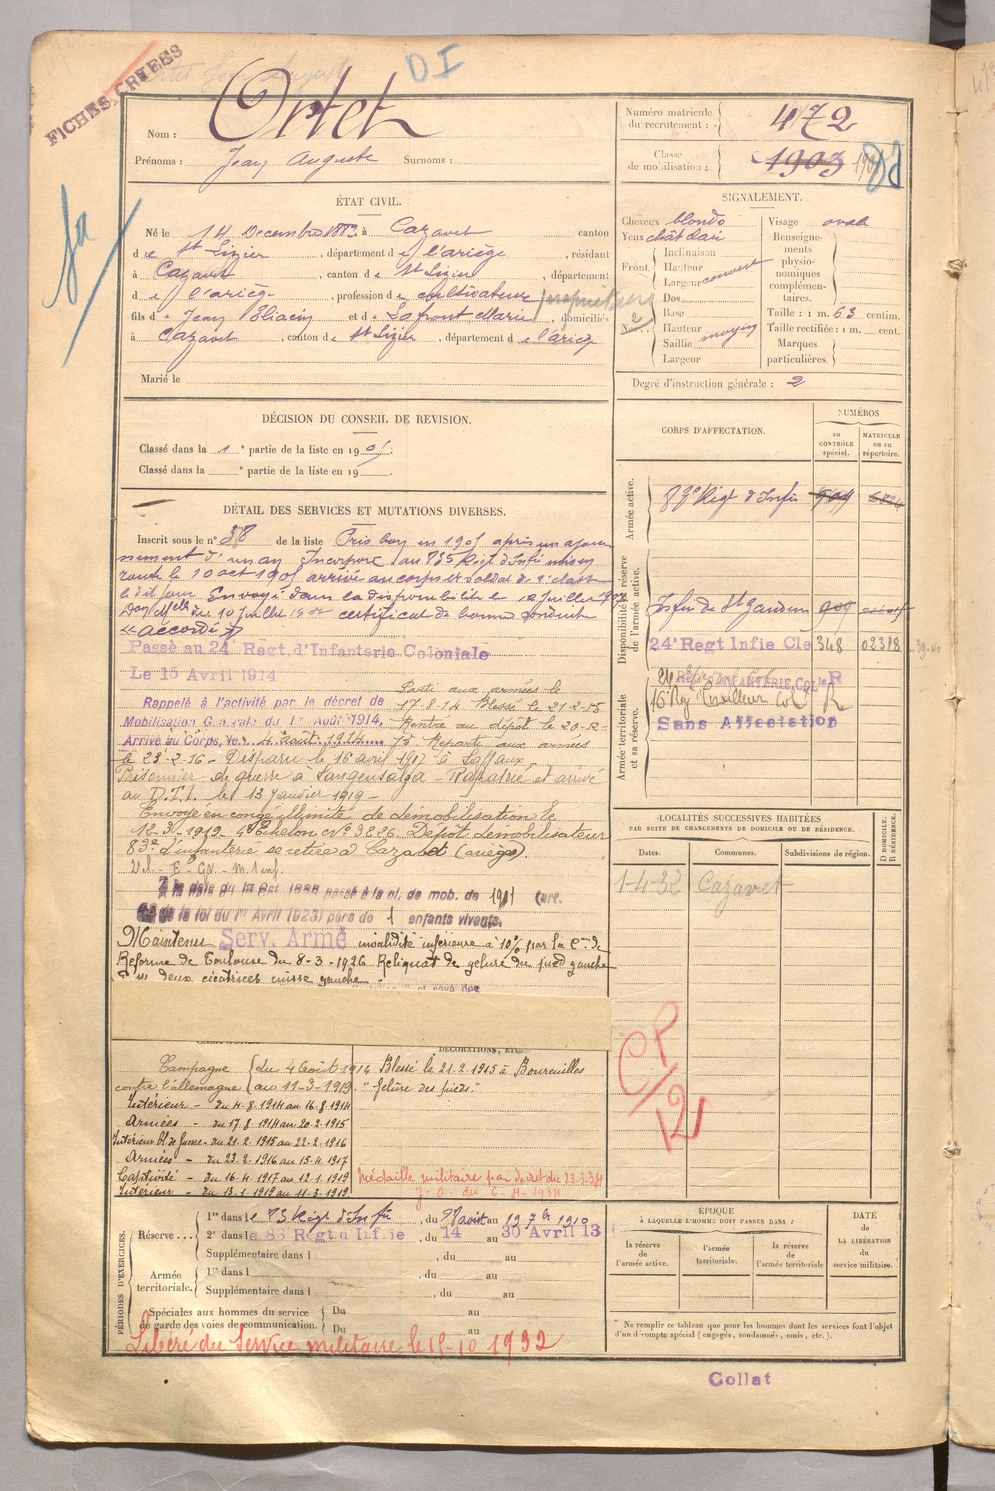 FICHES CRÉÉES
DI
Nom : Ortet
Prénoms : Jean Auguste Surnoms :
Numéro matricule
du recrutement : 472
Classe
de mobilisation : 1903
ÉTAT CIVIL.
Né le 14 Décembre 1883 à Cazavet canton
de St Lizier, département de l'ariège, résidant
à Cazavet, canton de St Lizier, département
de l'ariège, profession de cultivateur
fils de Jean Eliacin et de Lafront Marie, domiciliés
à Cazavet, canton de St Lizier, département de l'ariège
N° 2
Marié le
SIGNALEMENT.
Cheveux blonds
Yeux châtain
Front Inclinaison
Hauteur
Largeur couvert
Nez Dos
Base
Hauteur
Saillie moyen
Largeur
Visage ovale
Renseigne-
ments
physio-
nomiques
complémen-
taires.
Taille : 1 m. 63 centim.
Taille rectifiée : 1 m. cent.
Marques
particulières.
Degré d'instruction générale : 2
DÉCISION DU CONSEIL DE REVISION.
Classé dans la 1e partie de la liste en 190
Classé dans la e partie de la liste en 19
CORPS D'AFFECTATION.
NUMÉROS
au
CONTRÔLE
spécial.
MATRICULE
ou au
répertoire.
Armée active.
83e Régt d'Infie 909
Disponibilité et réserve
de l'armée active.
Infie de St Gaudens 909
24e Regt Infie Cle 348 02318
Armée territoriale
et sa réserve.
16 Reg Tirailleur Col R
Sans Affectation
DÉTAIL DES SERVICES ET MUTATIONS DIVERSES.
Inscrit sous le n° 38 de la liste Pris bon en 190 après un ajour-
nement d'un an Incorporé au 83e Régt d'Infie mis en
route le 10 oct 190 arrivé au corps et soldat de 2e classe
le dit jour. Envoyé dans la disponibilité le 12 juillet 190
Don Mels du 10 juillet certificat de bonne conduite
« accordé »
Passé au 24e Régt d'Infanterie Coloniale
Le 15 Avril 1914
Rappelé à l'activité par le décret de
Mobilisation Générale du 1er Août 1914,
Arrivé au Corps, le 4 août 1914
Parti aux armées le
17-8-14 Blessé le 21-2-15
Rentré au dépôt le 20-2-
15 Reparti aux armées
le 23-2-16 - Disparu le 16 avril 1917 à Laffaux,
Prisonnier de guerre à Langensalza - Rapatrié et arrivé
au D.T.I. le 13 Janvier 1919 -
Envoyé en congé illimité de démobilisation le
12-3-1919 4e Echelon n° 3226 Dépôt démobilisateur
83e d'infanterie se retire à Cazavet (ariège).
passé à la cl. de mob. de 1901 (art.
de la loi du 1er Avril 1923) père de 1 enfants vivants.
Maintenu Serv. Armé invalidité inférieure à 10% par la Con de
Réforme de Toulouse du 8-3-1926 Reliquat de gelure du pied gauche
deux cicatrices cuisse gauche
LOCALITÉS SUCCESSIVES HABITÉES
PAR SUITE DE CHANGEMENTS DE DOMICILE OU DE RÉSIDENCE.
Dates. Communes. Subdivisions de région.
D DOMICILE.
R RÉSIDENCE.
1-4-32 Cazavet
CP
12
DÉCORATIONS, ETC.
Campagne du 4 août 1914
contre l'allemagne au 11-3-1919
Intérieur - du 4-8-1914 au 16-8-1914
Armées - du 17-8-1914 au 20-2-1915
Intérieur bl. de guerre - du 21-2-1915 au 22-2-1916
Armées - du 23-2-1916 au 15-4-1917
Captivité - du 16-4-1917 au 12-1-1919
Intérieur - du 13-1-1919 au 11-3-1919
Blessé le 21-2-1915 à Boureuilles
"Gelûre des pieds."
Médaille militaire par décret du 23-3-34
J.O. du 6-4-1934
PÉRIODES D'EXERCICES.
Réserve 1re dans le 83 Régt d'Infie, du 27 août au 12 7bre 1910
2e dans le 83 Régt d'Infie, du 14 au 30 Avril 13
Supplémentaire dans l , du au
Armée
territoriale. 1re dans l , du au
Supplémentaire dans l , du au
Spéciales aux hommes du service
de garde des voies de communication.
Du au
Du au
Libéré du Service militaire le 15-10 1932
ÉPOQUE
À LAQUELLE L'HOMME DOIT PASSER DANS :
la réserve
de l'armée active.
l'armée
territoriale.
la réserve
de l'armée territoriale
DATE
de
LA LIBÉRATION
du
service militaire.
* Ne remplir ce tableau que pour les hommes dont les services font l'objet
d'un décompte spécial (engagés, condamnés, omis, etc.).
Collat